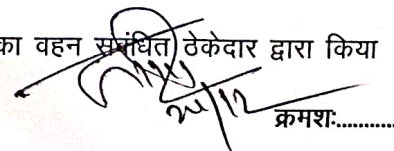 का वहन संबंधित ठेकेदार द्वारा किया
क्रमशः...........